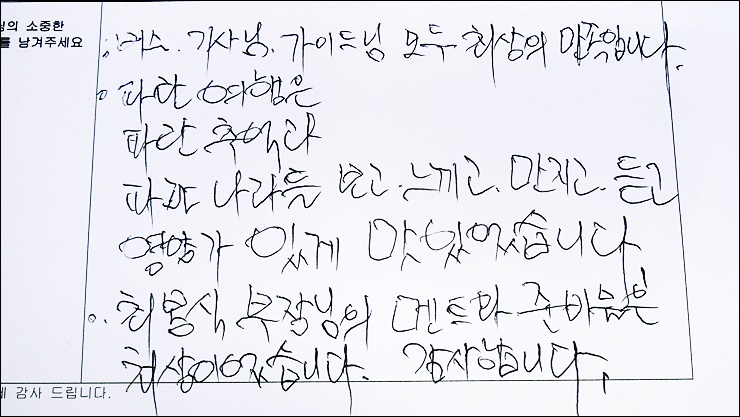 님의 소중한
를 남겨주세요
버스, 기사님, 가이드님 모두 최상의 만족입니다.
파란 여행은
파란 추억과
파란 나라를 보고, 느끼고, 만지고, 듣고
영양가 있게 맛있었습니다
최봉식 부장님의 멘트와 준비물은
최상이었습니다. 감사합니다.
감사 드립니다.